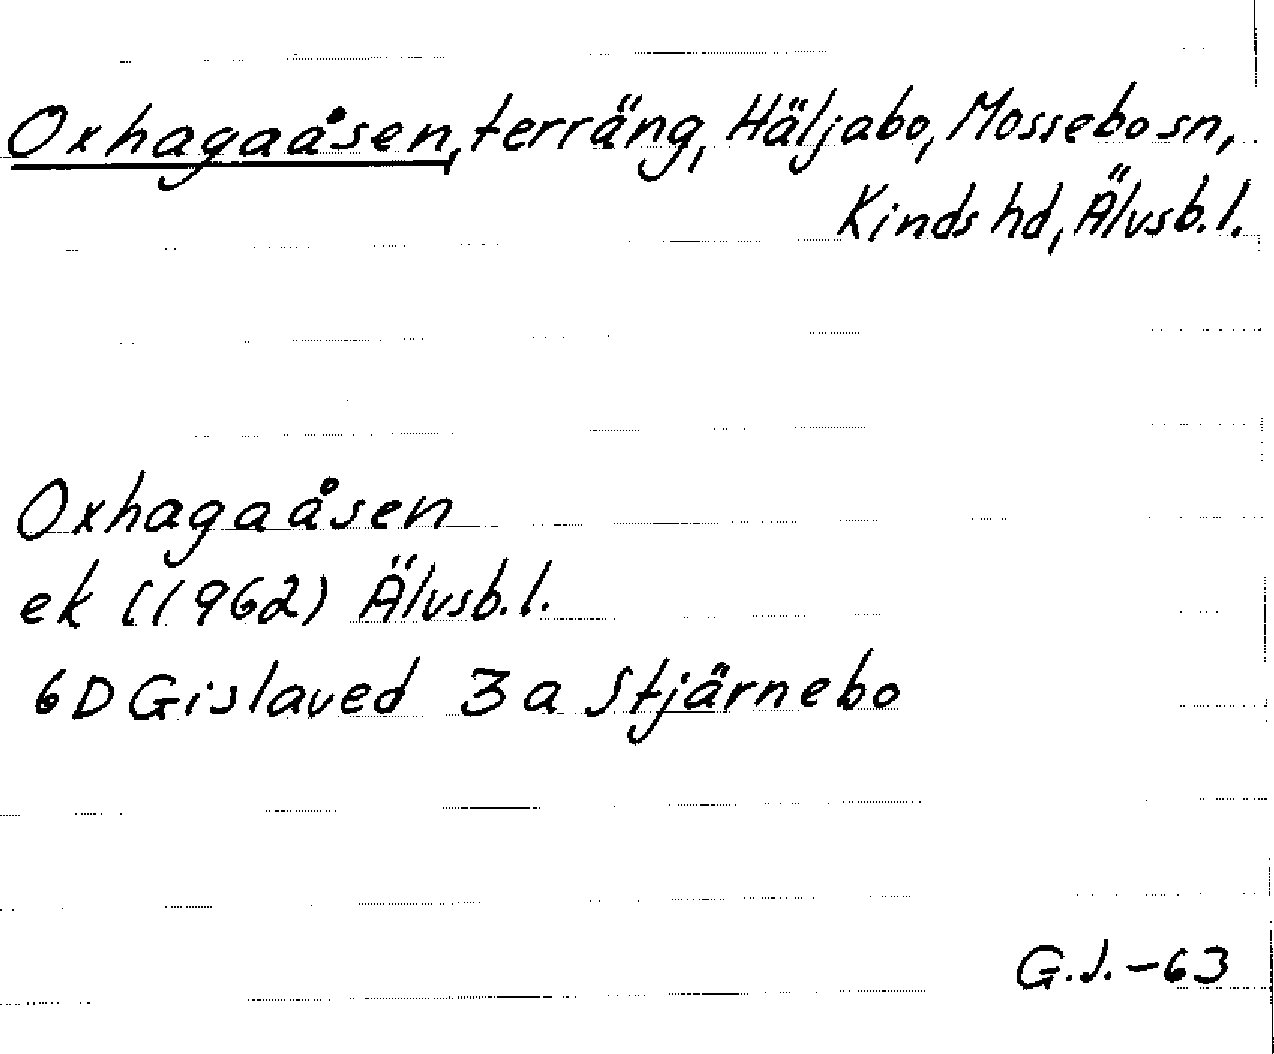 Oxhagaåsen, terräng, Häljabo, Mossebo sn,
Kinds hd, Älvsb. l.
Oxhagaåsen
ek (1962) Älvsb. l.
6D Gislaved 3a Stjärnebo
G.J.-63